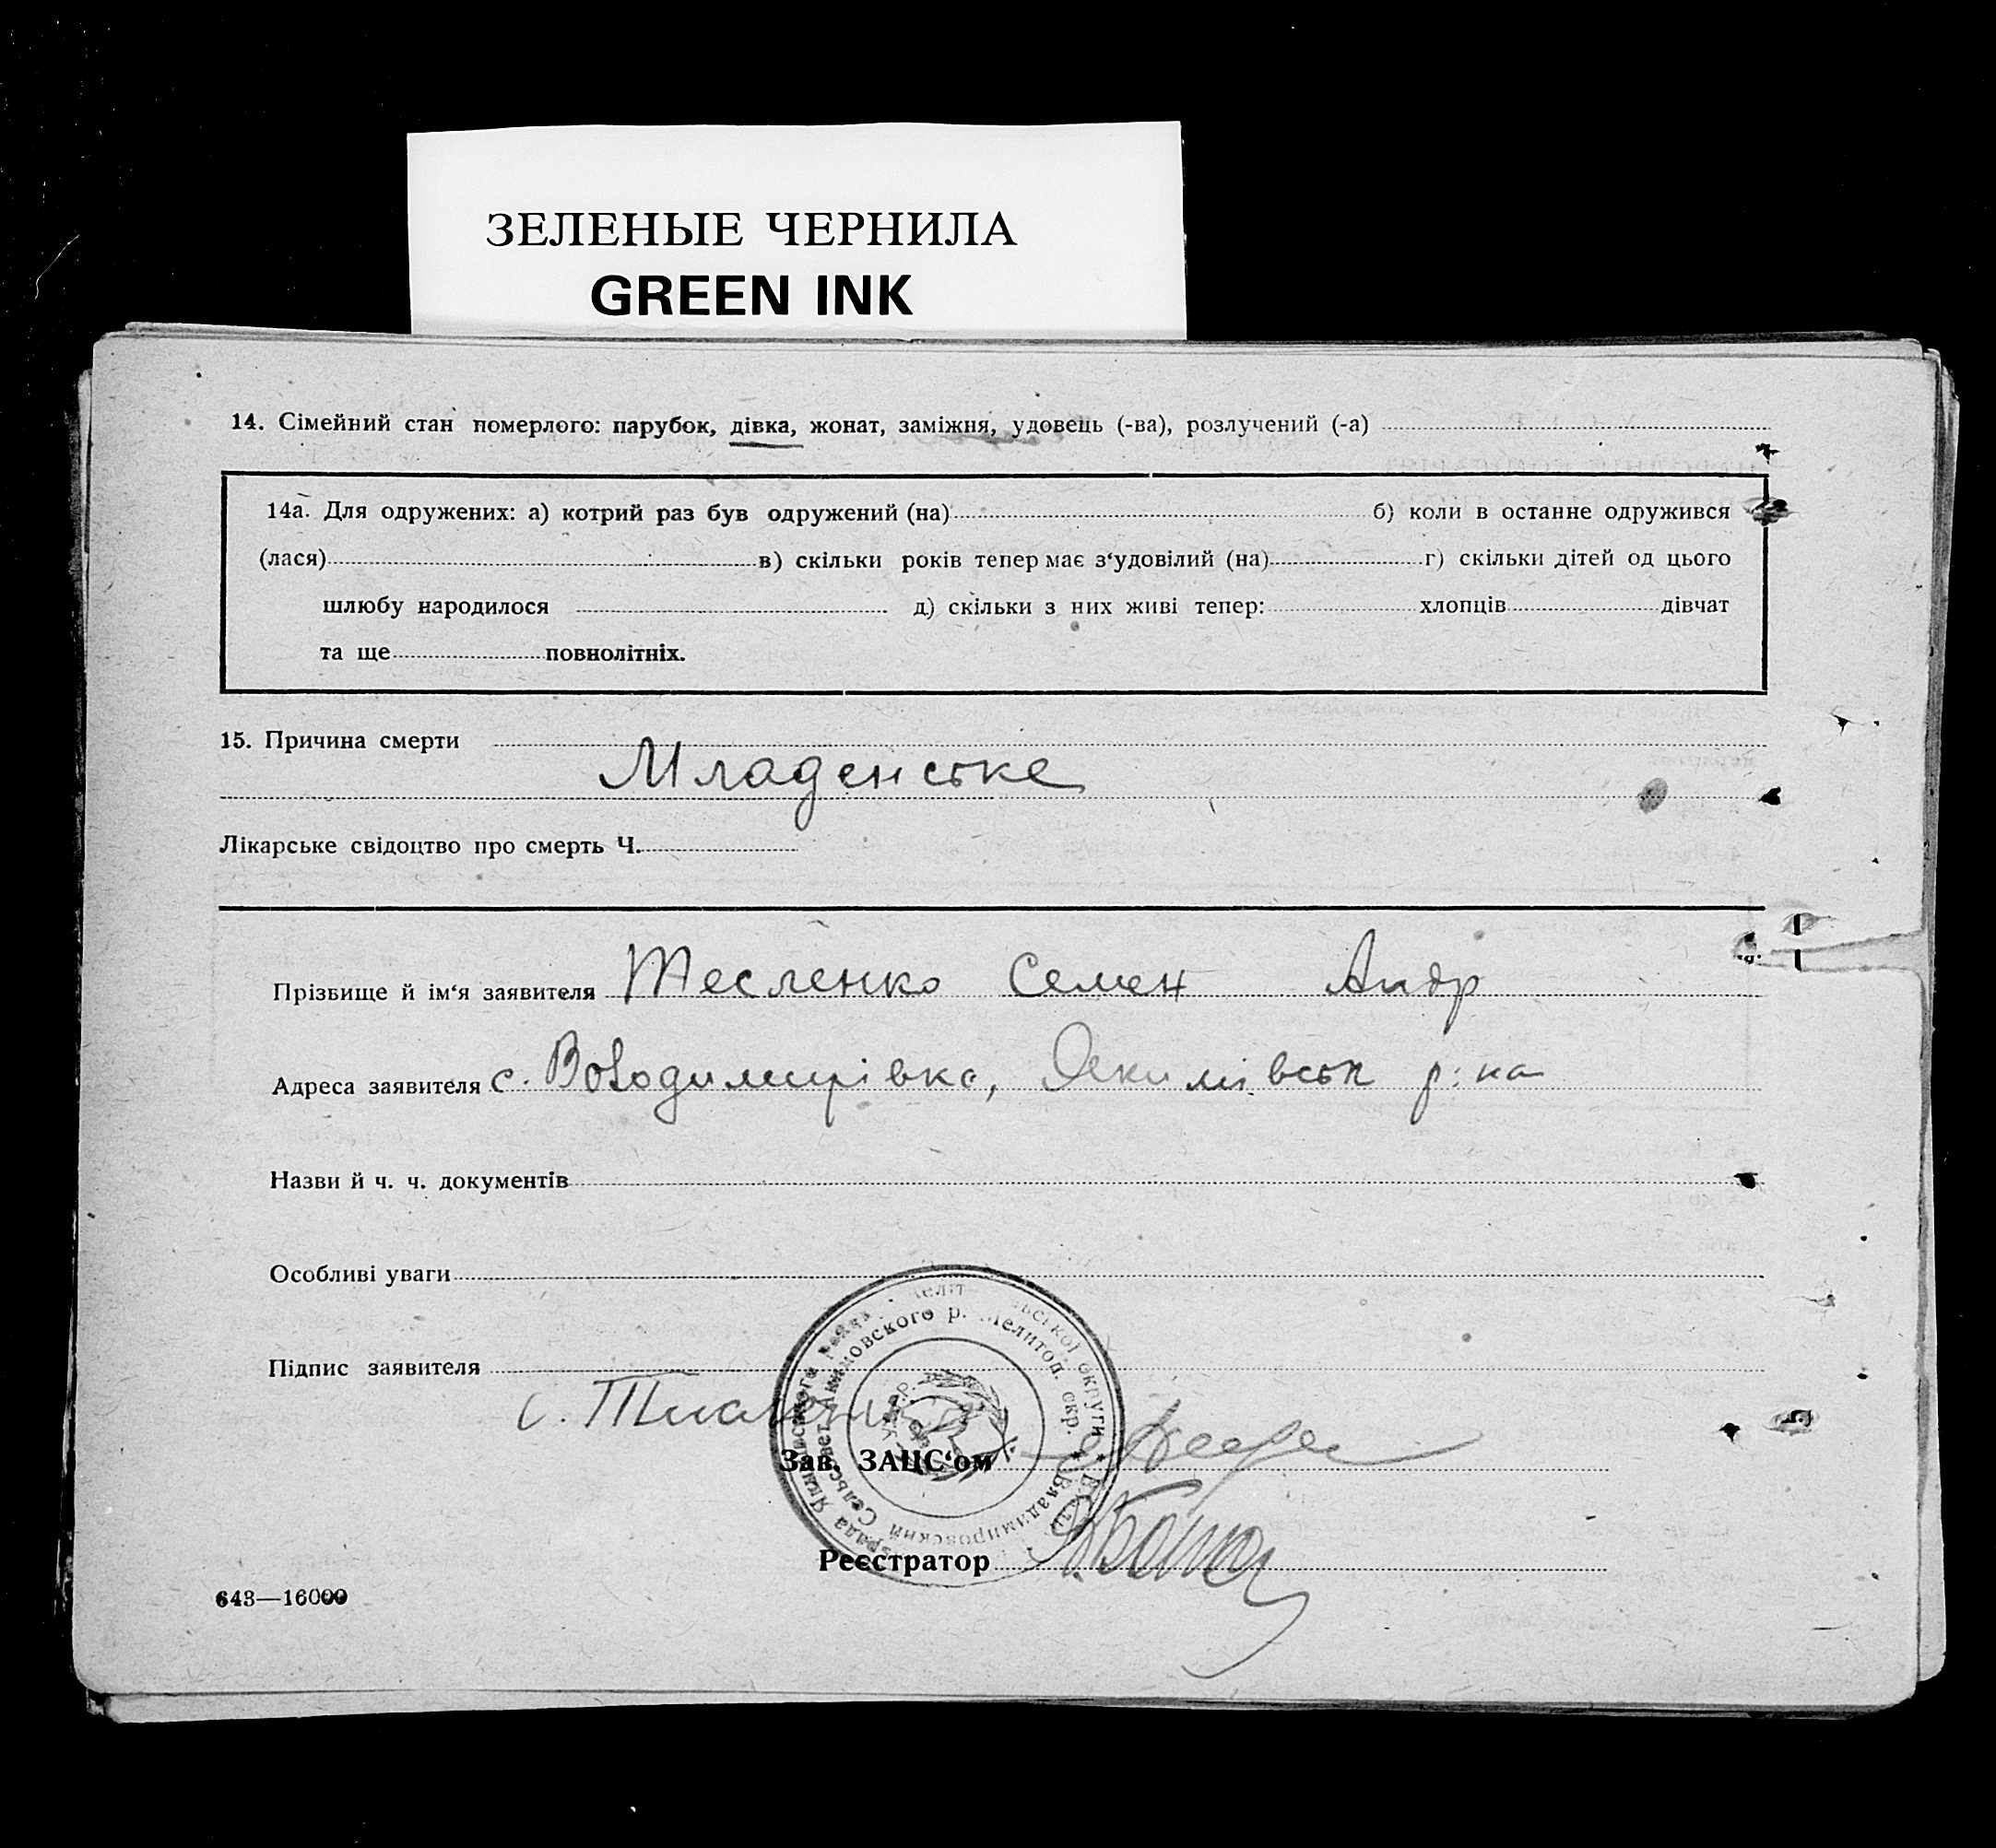 ЗЕЛЕНЫЕ ЧЕРНИЛА
GREEN INK
14. Сімейний стан померлого: парубок, дівка, жонат, заміжня, удовець (-ва), розлучений (-а)
14а. Для одружених: а) котрий раз був одружений (на) б) коли в останне одружився
(лася) в) скільки років тепер має з‘удовілий (на) г) скільки дітей од цього
шлюбу народилося д) скільки з них живі тепер: хлопців дівчат
та ще повнолітніх.
15. Причина смерти
Младенське
Лікарське свідоцтво про смерть Ч.
Прізвище й ім‘я заявителя Тесленко Семен Андр
Адреса заявителя с. Володимирівка, Якимівськ р: на
Назви й ч. ч. документів
Особливі уваги
Підпис заявителя
с.
Зав. ЗАЦС‘ом
Реєстратор
643—16000
Якимівського округи
Владимировский Сельсовет Акимовского р. Мелитоп. окр.